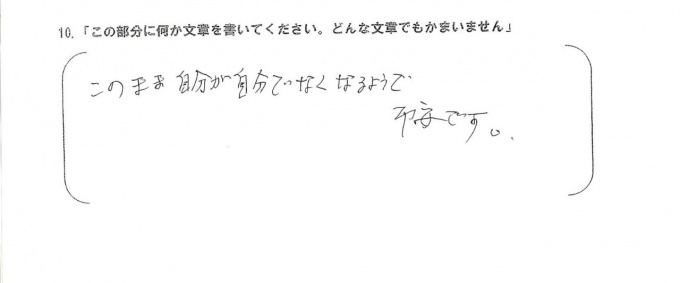 10.「この部分に何か文章を書いてください。どんな文章でもかまいません」
このまま自分が自分でなくなるようで
不安です。